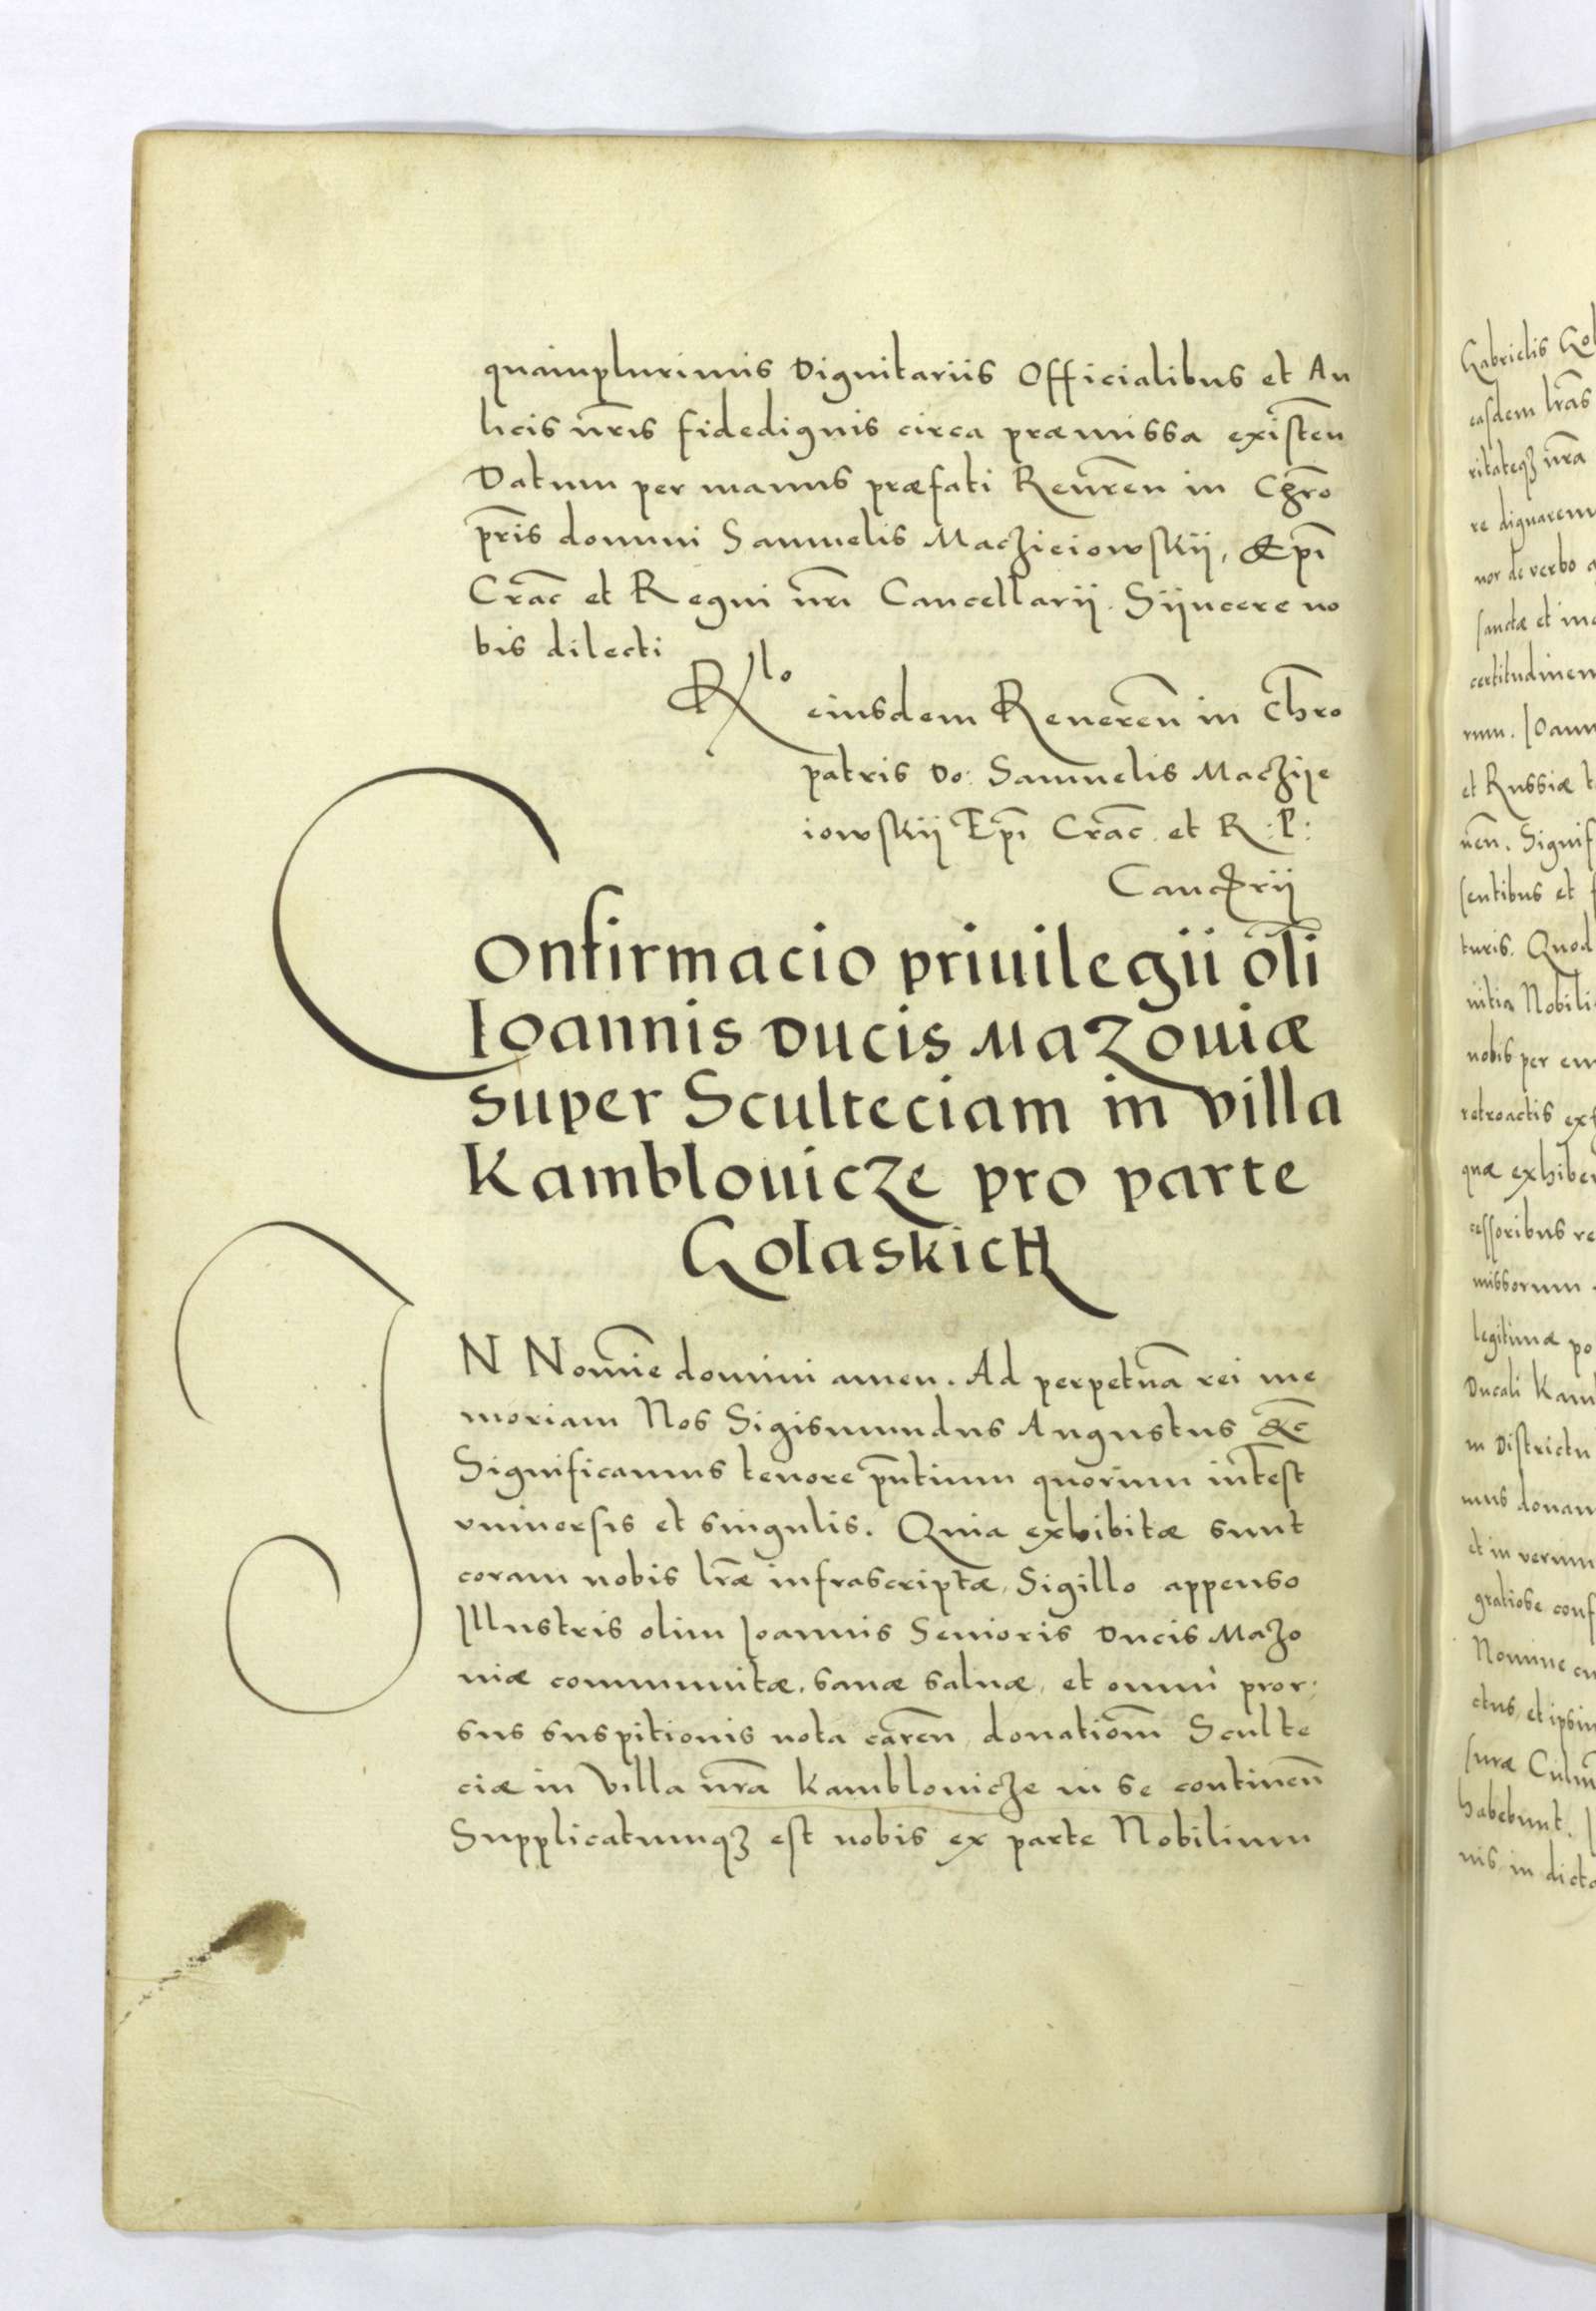 quamplurimis Dignitariis Officialibus et Au
licis nr̄is fidedignis circa præmissa existeñ
Datum per manus præfati Reuẽren in Chr̄o
pr̄is domini Samuelis Maczieiowskij, Ep̄i
Crac̄ et Regni nr̄i Cancellarij. Sijncere no
bis dilecti
R̃lo eiusdem Reuereñ in Chr̄o
patris Do: Samuelis Maczije
iowskij Ep̄i Crac̄. et R: P:
Cancr̄ij
Confirmacio priuilegii oli̅
Ioannis Ducis Mazouiæ
super Sculteciam in villa
Kamblouicze pro parte
Golaskich
IN Nomīe domini amen. Ad perpetuā rei me
moriam Nos Sigismundus Augustus &c̄
Significamus tenore pn̄tium quorum int̄est
vniuersis et singulis. Quia exhibitæ sunt
coram nobis lr̄æ infrascriptæ, Sigillo appenso
Illustris olim Ioannis Senioris Ducis Mazo
uiæ communitæ, sanæ saluæ, et omni pror:
sus suspitionis nota careñ, donatiom̄ Sculte
ciæ in Villa nr̄a Kamblouicze in se contineñ
Supplicatumqꝫ est nobis ex parte Nobilium
Gabrielis Gol
easdem lr̄as
ritateqꝫ nr̄a
re dignarem
nor de verbo a
sanctæ et in
certitudinem
rum. Ioann
et Russiæ t
neñ. Signif
sentibus et f
turis. Quod
uitia Nobili
nobis per em
retroactis ex
quæ exhiber
cessoribus re
missorum
legitimæ po
Ducali Kam
in Districtu
mus donan
et in verum
gratiose conf
Nomine cu
ctus, et ipsiu
suræ Culm
habebunt. I
nis, in dicta